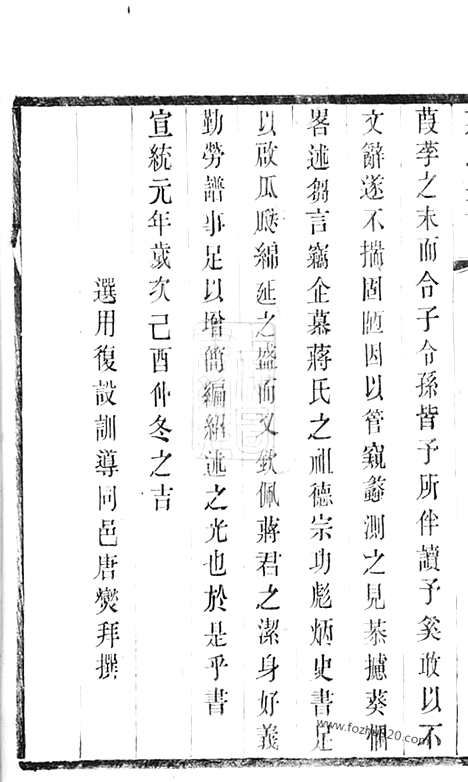 葭莩之末而令子令孫皆予所伴讀予奚敢以不
文辭遂不揣固陋因以管窺蠡測之見恭攄葵悃
畧述芻言竊企慕蔣氏之祖德宗功彪炳史書足
以啟瓜瓞綿延之盛而又欽佩蔣君之潔身好義
勤勞譜事足以增簡編紹述之光也於是乎書
宣統元年歲次己酉仲冬之吉
選用復設訓導同邑唐爕拜撰
www.fozhu920.com